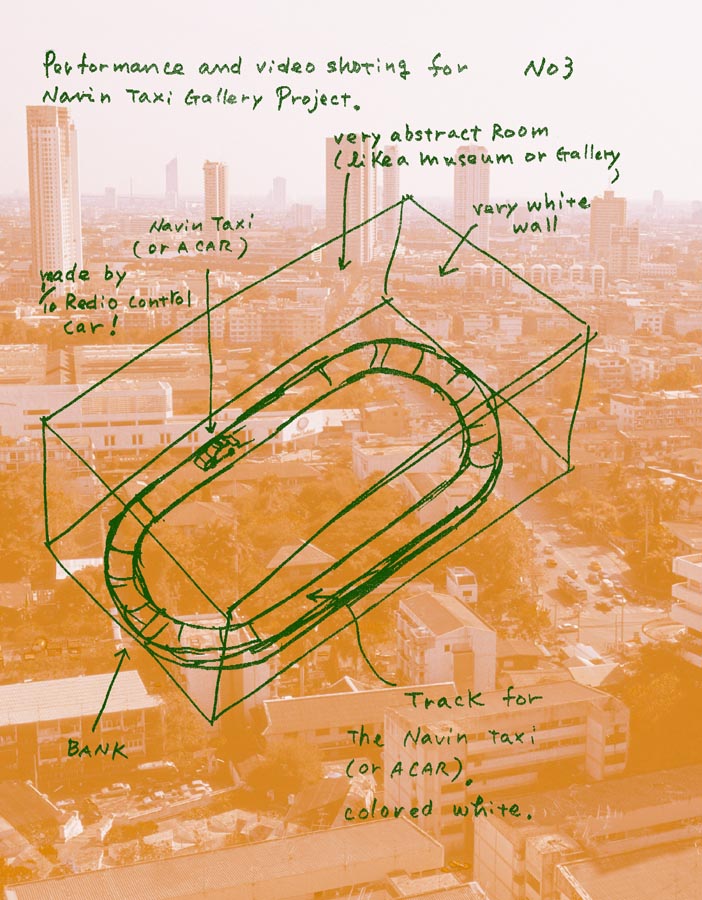 Performance and video shoting for No3
Navin Taxi Gallery Project.
very abstract Room
(like a museum or Gallery
)
very white
wall
Navin Taxi
(or A CAR)
made by
Redio control
car!
BANK
Track for
The Navin taxi
(or A CAR).
colored white.